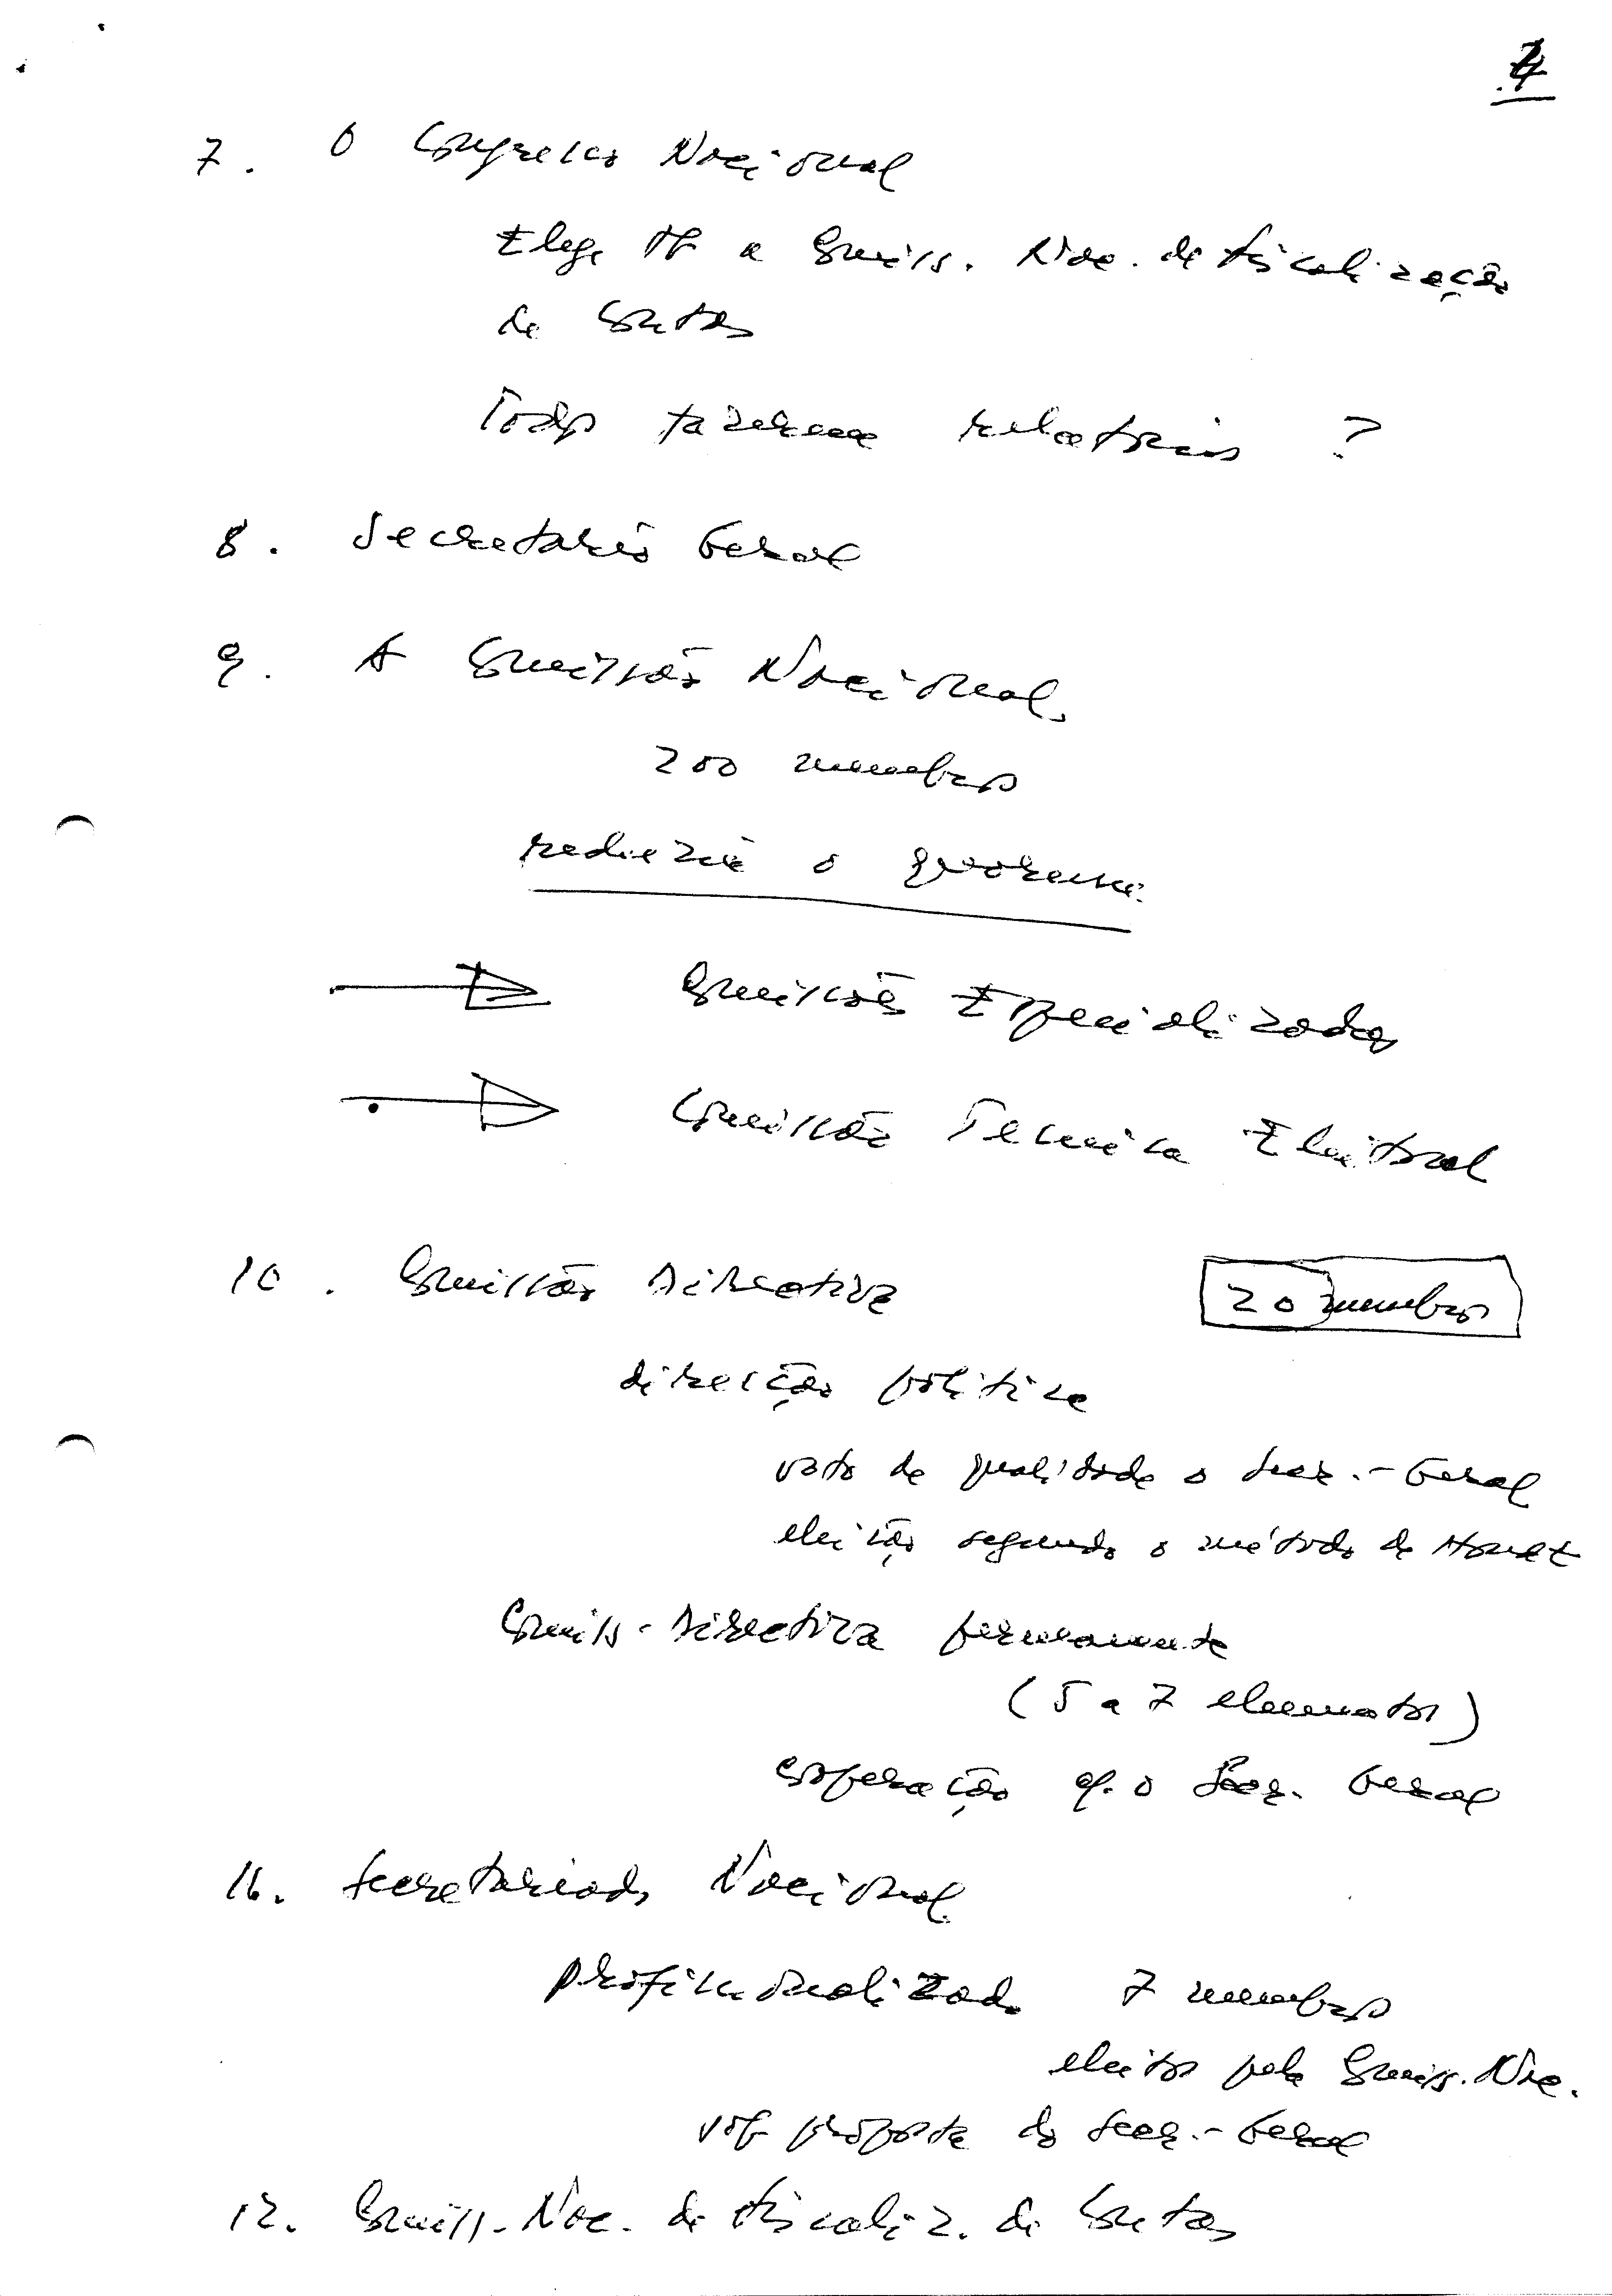 4
7. O Congresso Nacional
Elege tb a Comiss. Nac. de fiscalização
de Contas
Todos fazerem relatórios ?
8. Secretário Geral
9. A Comissão Nacional
200 membros
reduzir o quorum
Comissões Especializadas
Comissão Técnica Eleitoral
10. Comissão Directiva 20 membros
direcção política
voto de qualidade o Secr.-Geral
eleição segundo o método de Hondt
Comiss. Directiva permanente
(5 a 7 elementos)
cooperação c/ o Secr. Geral
11. Secretariado Nacional
profissionalizado 7 membros
eleitos pela Comiss. Nac.
sob proposta do Secr.-Geral
12. Comiss. Nac. de fiscaliz. de Contas